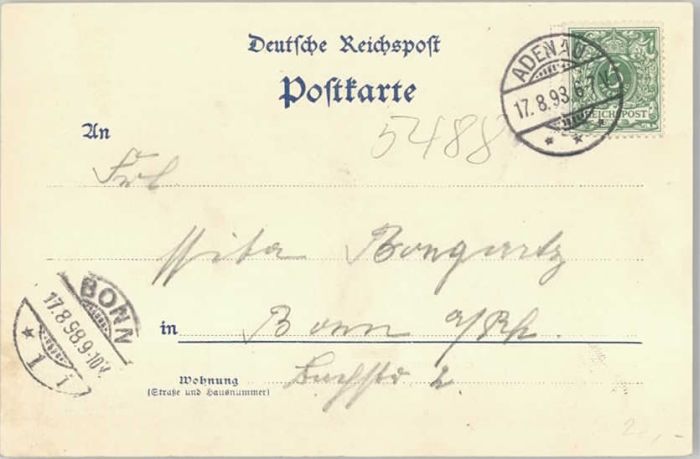 Deutsche Reichspost
Postkarte
ADENAU
17.8.98.6-7V.
5
REICHSPOST
5488
An
Frl
Bongartz
BONN
17.8.98.9-10V.
* 1 *
in Bonn a/Rh.
Wohnung
(Straße und Hausnummer)
Bachstr 2.